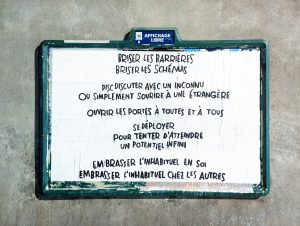 AFFICHAGE
LIBRE
BRISER LES BARRIÈRES
BRISER LES SCHÉMAS
DISCUTER AVEC UN INCONNU
OU SIMPLEMENT SOURIRE À UNE ÉTRANGÈRE
OUVRIR LES PORTES À TOUTES ET À TOUS
SE DÉPLOYER
POUR TENTER D'ATTEINDRE
UN POTENTIEL INFINI
EMBRASSER L'INHABITUEL EN SOI
EMBRASSER L'INHABITUEL CHEZ LES AUTRES